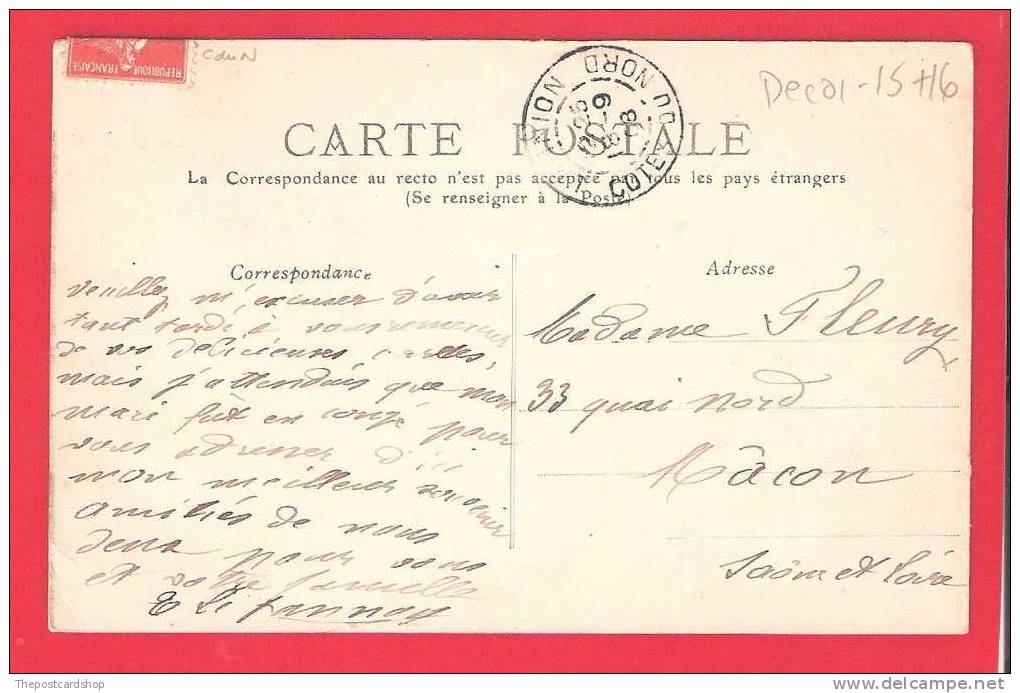 REPUBLIQUE
FRANCAISE
C du N
COTES DU NORD
Decol-15+16
CARTE POSTALE
La Correspondance au recto n'est pas acceptée par tous les pays étrangers
(Se renseigner à la Poste)
Correspondance
veuillez m'excuser d'avoir
tant tardé à vous remercier
de vos délicieuses cartes,
mais j'attendais que mon
mari fût en congé pour
vous adresser d'ici
mon meilleur souvenir
amitiés de nous
deux pour vous
et votre famille
Adresse
Madame Fleury
33 quai Nord
Mâcon
Saône et Loire
Thepostcardshop
www.delcampe.net